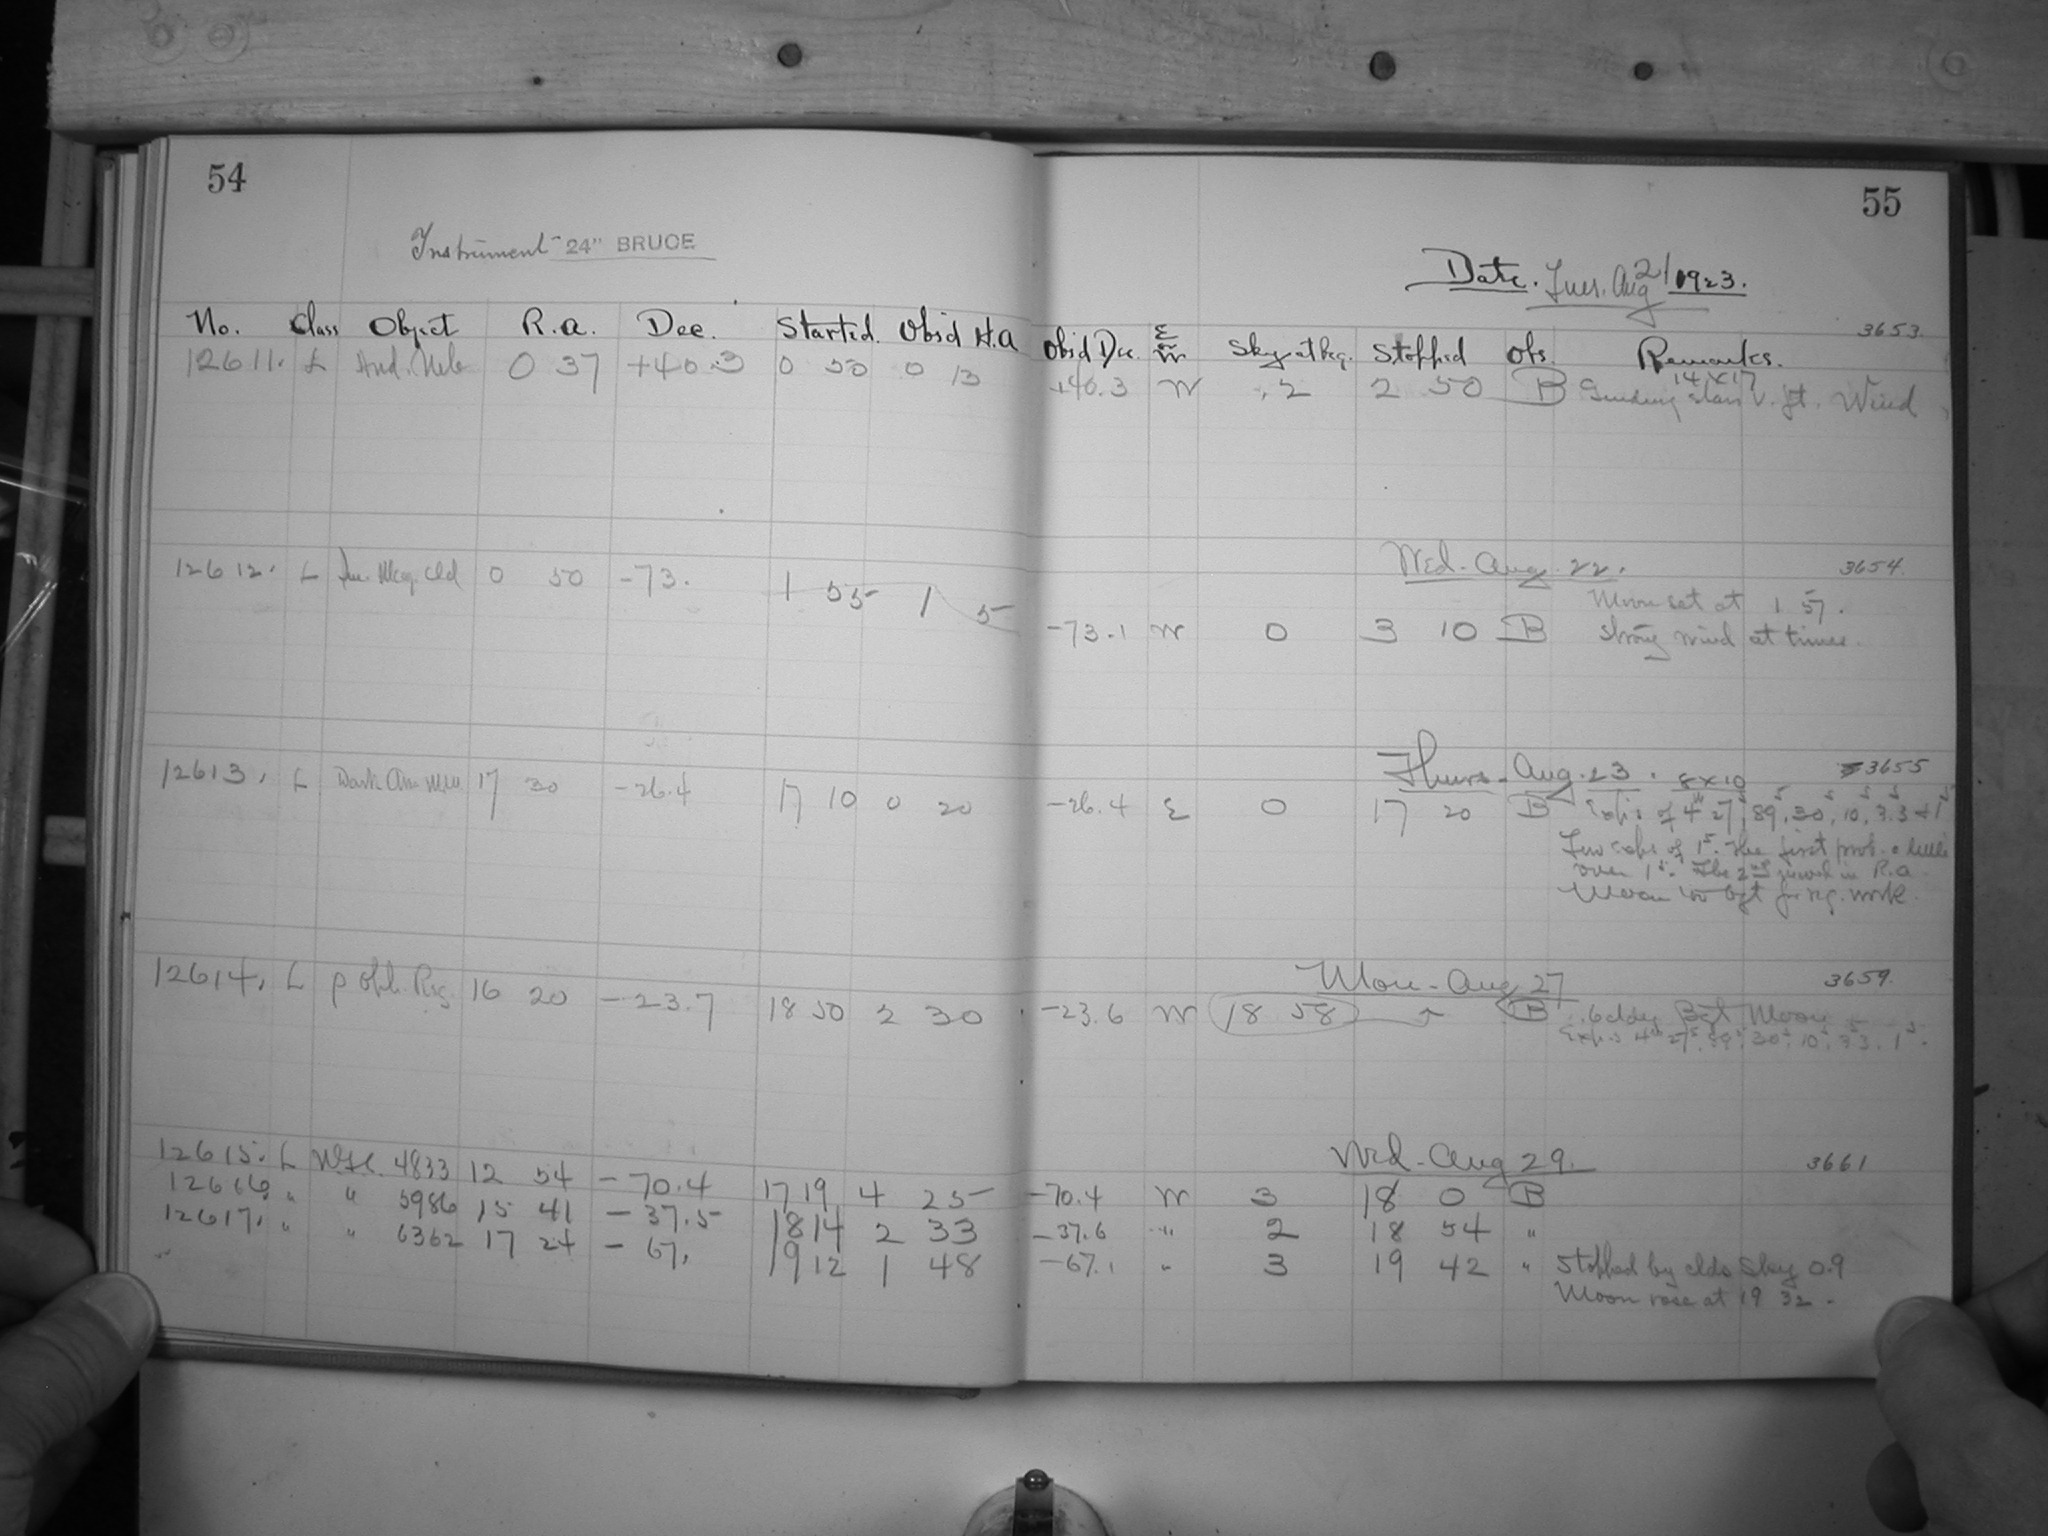 54
55
Instrument 24" BRUCE
Date. Tues. Aug 21 1923.
No. Class Object R.a. Dec. Started. Obs'd H.A Obs'd Dec. E or W Sky at Beg. Stopped Obs. Remarks.
3653.
12611. L And. Neb 0 37 +40.3 0 50 0 13 +40.3 W .2 2 50 B 14x17
Guiding stars v. ft. Wind
Wed. Aug. 22. 3654.
12612. L Mag. Cld 0 50 -73. 1 55 1 5 -73.1 W 0 3 10 B Moon set at 1 57.
strong wind at times.
Thurs. Aug. 23. 8x10 3655
12613. L Dark 17 30 -26.4 17 10 0 20 -26.4 E 0 17 20 B Exp's of 4m 27s, 89s, 30s, 10s, 3.3s + 1s
Two exps of 1s. The first prob. a little
over 1s. The 2nd moved in R.a.
Moon too bgt for reg. work.
Mon. Aug 27 3659.
12614. L ρ Oph. Reg. 16 20 -23.7 18 50 2 30 -23.6 W 18 58 B Cldy Bgt Moon
Exp's 4m 27s, 89s, 30s, 10s, 3.3, 1s.
Wed. Aug 29. 3661
12615. L N.G.C. 4833 12 54 -70.4 17 19 4 25 -70.4 W 3 18 0 B
12616. " " 5986 15 41 -37.5 18 14 2 33 -37.6 " 2 18 54 "
12617. " " 6362 17 24 -67. 19 12 1 48 -67.1 " 3 19 42 " Stopped by clds Sky 0.9
Moon rose at 19 32.